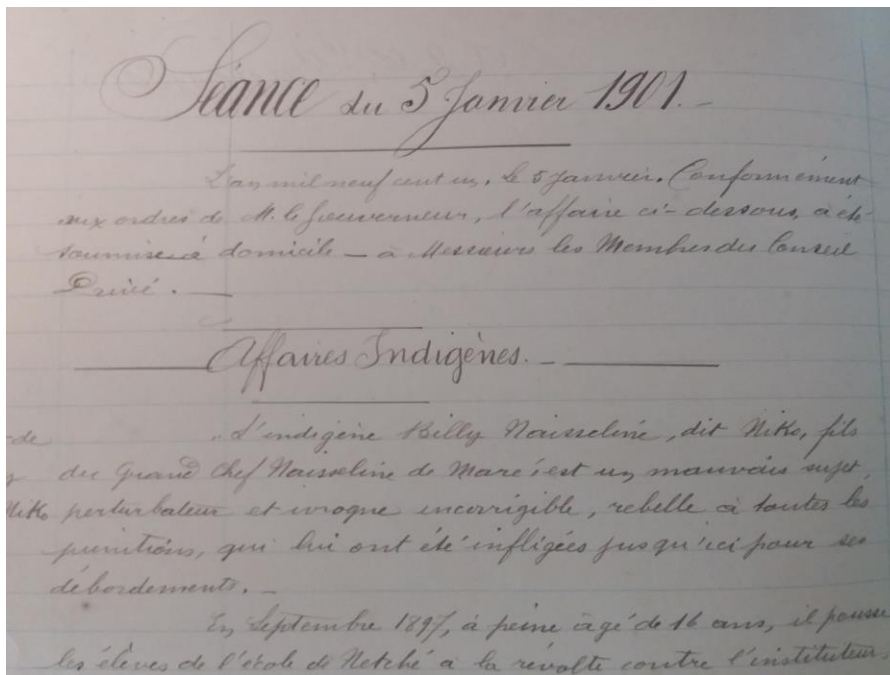 Séance du 5 Janvier 1901. -
L'an mil neuf cent un, le 5 Janvier. Conformément
aux ordres de M. le Gouverneur, l'affaire ci-dessous, a été
soumise à domicile - à Messieurs les Membres du Conseil
Privé. -
Affaires Indigènes. -
"L'indigène Billy Naisseline, dit Niko, fils
de
du Grand Chef Naisseline de Maré, est un mauvais sujet,
Niko perturbateur et ivrogne incorrigible, rebelle à toutes les
punitions, qui lui ont été infligées jusqu'ici pour ses
débordements. -
En Septembre 1897, à peine âgé de 16 ans, il pousse
les élèves de l'école de Netché à la révolte contre l'instituteur.